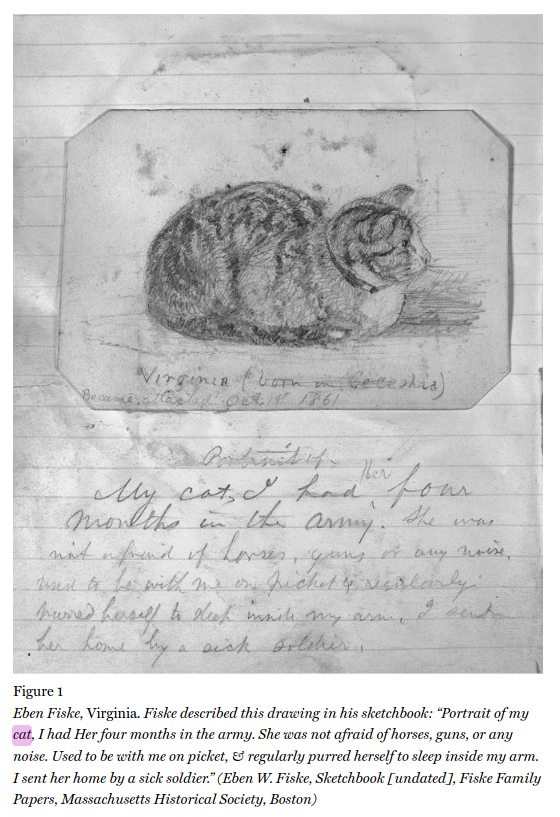 Virginia (born in Seceshia)
Became attached Oct. 1st 1861
Portrait of
My cat, I had Her four
months in the army. She was
not afraid of horses, guns or any noise,
used to be with me on picket & regularly
purred herself to sleep inside my arm, I sent
her home by a sick soldier.
Figure 1
Eben Fiske, Virginia. Fiske described this drawing in his sketchbook: “Portrait of my
cat, I had Her four months in the army. She was not afraid of horses, guns, or any
noise. Used to be with me on picket, & regularly purred herself to sleep inside my arm.
I sent her home by a sick soldier.” (Eben W. Fiske, Sketchbook [undated], Fiske Family
Papers, Massachusetts Historical Society, Boston)